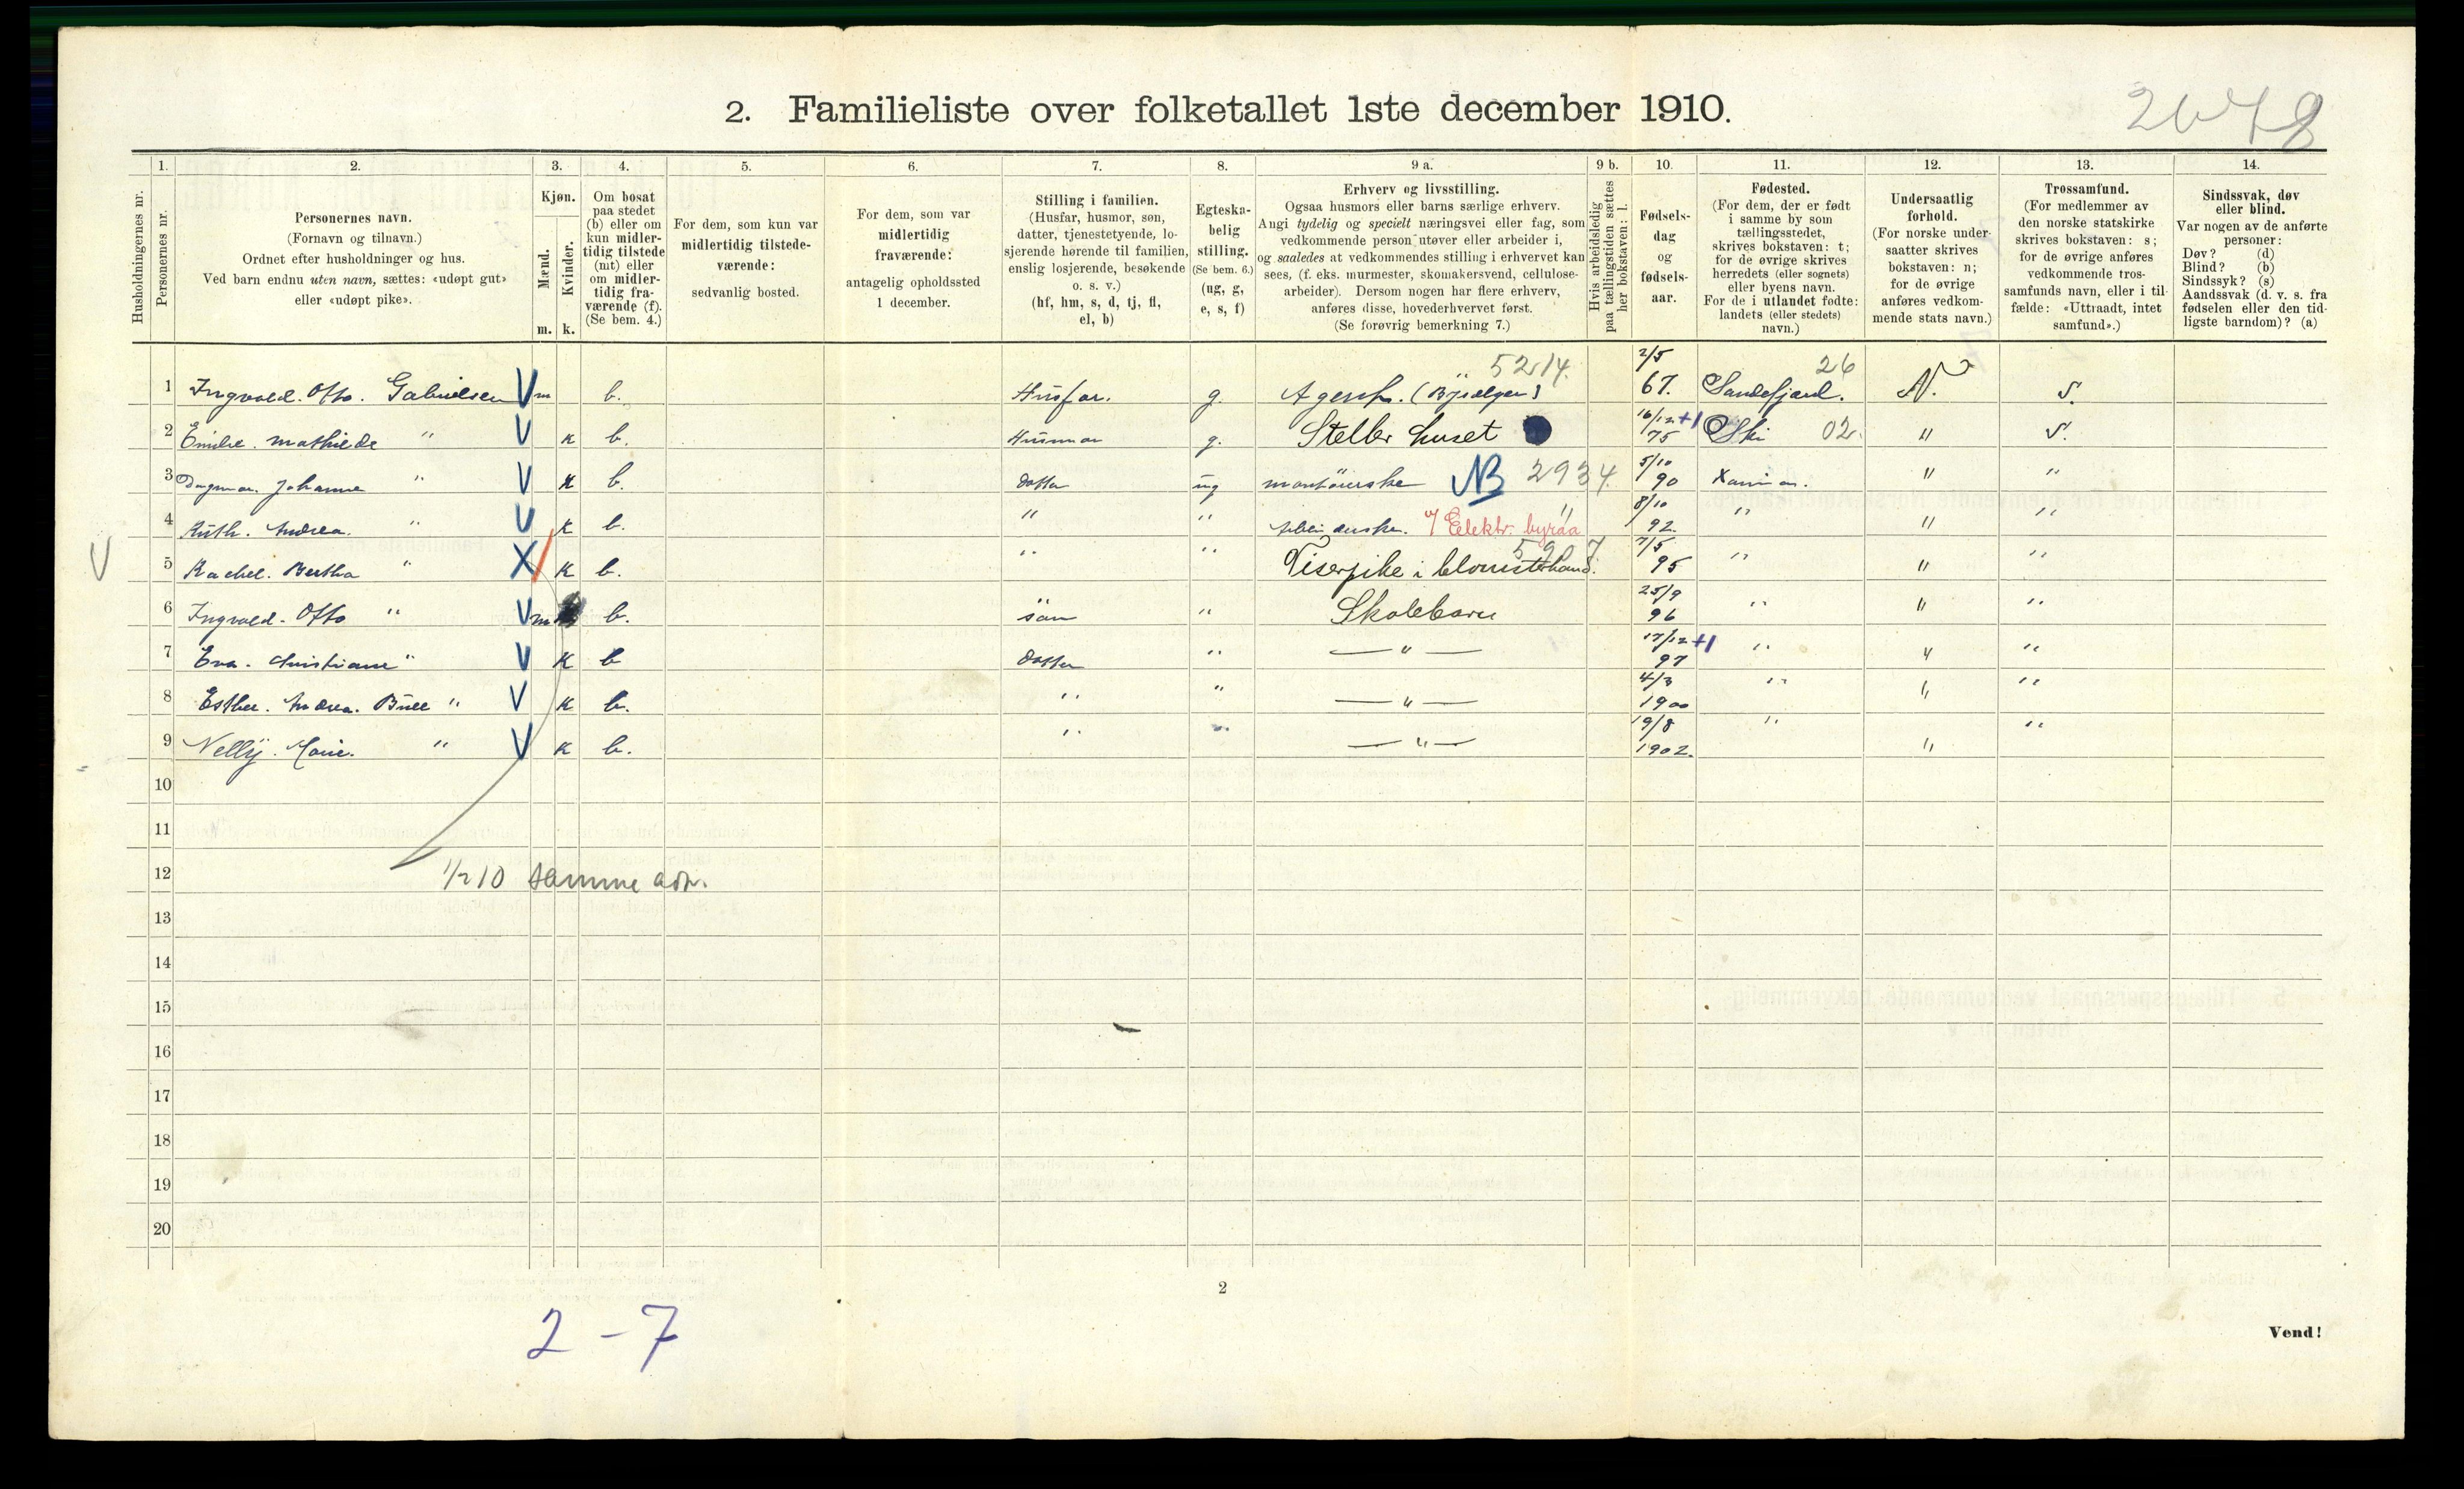 2. Familieliste over folketallet 1ste december 1910.
2678
Husholdningernes nr.
1.
Personernes nr.
2.
Personernes navn.
(Fornavn og tilnavn.)
Ordnet efter husholdninger og hus.
Ved barn endnu uten navn, sættes: «udøpt gut»
eller «udøpt pike».
3.
Kjøn.
Mænd.
Kvinder.
m. k.
4.
Om bosat
paa stedet
(b) eller om
kun midler-
tidig tilstede
(mt) eller
om midler-
tidig fra-
værende (f).
(Se bem. 4.)
5.
For dem, som kun var
midlertidig tilstede-
værende:
sedvanlig bosted.
6.
For dem, som var
midlertidig
fraværende:
antagelig opholdssted
1 december.
7.
Stilling i familien.
(Husfar, husmor, søn,
datter, tjenestetyende, lo-
sjerende hørende til familien,
enslig losjerende, besøkende
o. s. v.)
(hf, hm, s, d, tj, fl,
el, b)
8.
Egteska-
belig
stilling.
(Se bem. 6.)
(ug, g,
e, s, f)
9 a.
Erhverv og livsstilling.
Ogsaa husmors eller barns særlige erhverv.
Angi tydelig og specielt næringsvei eller fag, som
vedkommende person utøver eller arbeider i,
og saaledes at vedkommendes stilling i erhvervet kan
sees, (f. eks. murmester, skomakersvend, cellulose-
arbeider). Dersom nogen har flere erhverv,
anføres disse, hovederhvervet først.
(Se forøvrig bemerkning 7.)
9 b.
Hvis arbeidsledig
paa tællingstiden sættes
her bokstaven: l.
10.
Fødsels-
dag
og
fødsels-
aar.
11.
Fødested.
(For dem, der er født
i samme by som
tællingsstedet,
skrives bokstaven: t;
for de øvrige skrives
herredets (eller sognets)
eller byens navn.
For de i utlandet fødte:
landets (eller stedets)
navn.)
12.
Undersaatlig
forhold.
(For norske under-
saatter skrives
bokstaven: n;
for de øvrige
anføres vedkom-
mende stats navn.)
13.
Trossamfund.
(For medlemmer av
den norske statskirke
skrives bokstaven: s;
for de øvrige anføres
vedkommende tros-
samfunds navn, eller i til-
fælde: «Uttraadt, intet
samfund».)
14.
Sindssvak, døv
eller blind.
Var nogen av de anførte
personer:
Døv? (d)
Blind? (b)
Sindssyk? (s)
Aandssvak (d. v. s. fra
fødselen eller den tid-
ligste barndom)? (a)
5214. 2/5 26
1 Ingvald. Otto. Gabrielsen V m b. Husfar. g. Agent. 67. Sandefjord. N. S.
2 mathilde " V k b. Husmor g. Steller huset 16/12 +1 75 Ski 02 " S.
3 Dagmar. Johanne " V k b. datter ug montøirske NB 2934 5/10 90 " "
4 Ruth. Andrea. " V k b. " " " Elektr. byraa 8/10 92. " " "
V 5 Rachel. Bertha " X/ k b. " " Viserpike i blomsterhand. 5907 7/5 95 " " "
6 Ingvald. Otto " V m b. søn " Skolebarn 25/9 96 " " "
7 Eva. Christiane " V k b datter " — " — 17/12 +1 97 " " "
8 Esther. Andrea. " V k b. " " — " — 4/3 1900 " " "
9 Nelly. Marie. " V k b. " " — " — 19/8 1902. " " "
10
11
12 1/2 10 samme adr.
13
14
15
16
17
18
19
20
2
2 - 7
Vend!